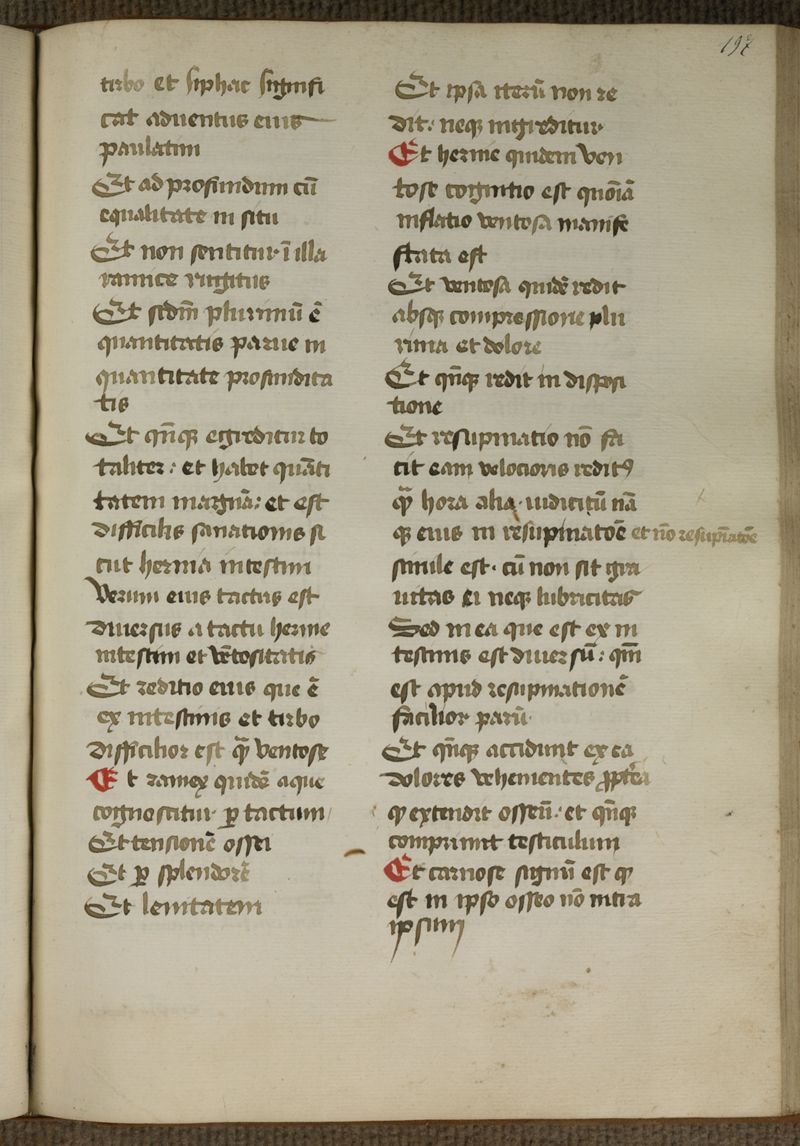 197
turbo et siphac signifi
cat aduentus eius
paulatim
Et ad profundum cū
equalitate in situ
Et non sentitur ī illa
ramice rugitus
Et sedm̄ plurimū ē
quantitatis parue in
quantitate profundita
tis
Et qn̄qꝫ egreditur to
taliter: et habet quāti
tatem magnā: et est
difficilis sanationis si
cut hernia intestini
Verum eius tactus est
diuersus a tactu hernie
intestini et vētositatis
Et reditio eius que ē
ex intestinis et turbo
difficilior est qͣꝫ ventose
Et ramex quidē aque
cognoscitur ꝑ tactum
Et tensionē ossei
Et ꝑ splendorē
Et lenitatem
Et ipsa iterū non re
dit: neqꝫ ingreditur
Et hernie quidem ven
tose cognitio est quōiā
inflatio ventosa manife
stata est
Et ventosa quidē redit
absqꝫ compressione plu
rima et dolore
Et qn̄qꝫ redit in disposi
tione
Et resupinatio nō fa
cit eam velocioris reditꝰ
hora alia
qꝫ eius in resupinatōe et nō resupinatōe
simile est. cū non sit gra
uitas ei neqꝫ lubricitas
Sed in ea que est ex in
testinis est diuersū: qm̄
est apud resupinationē
facilior parū
Et qn̄qꝫ accidunt ex ea
dolores vehementes ꝓpterea
ꝙ extendit osseū: et qn̄qꝫ
comprimit testiculum
Et carnose signū est ꝙ
est in ipso osseo nō intra
ipsum